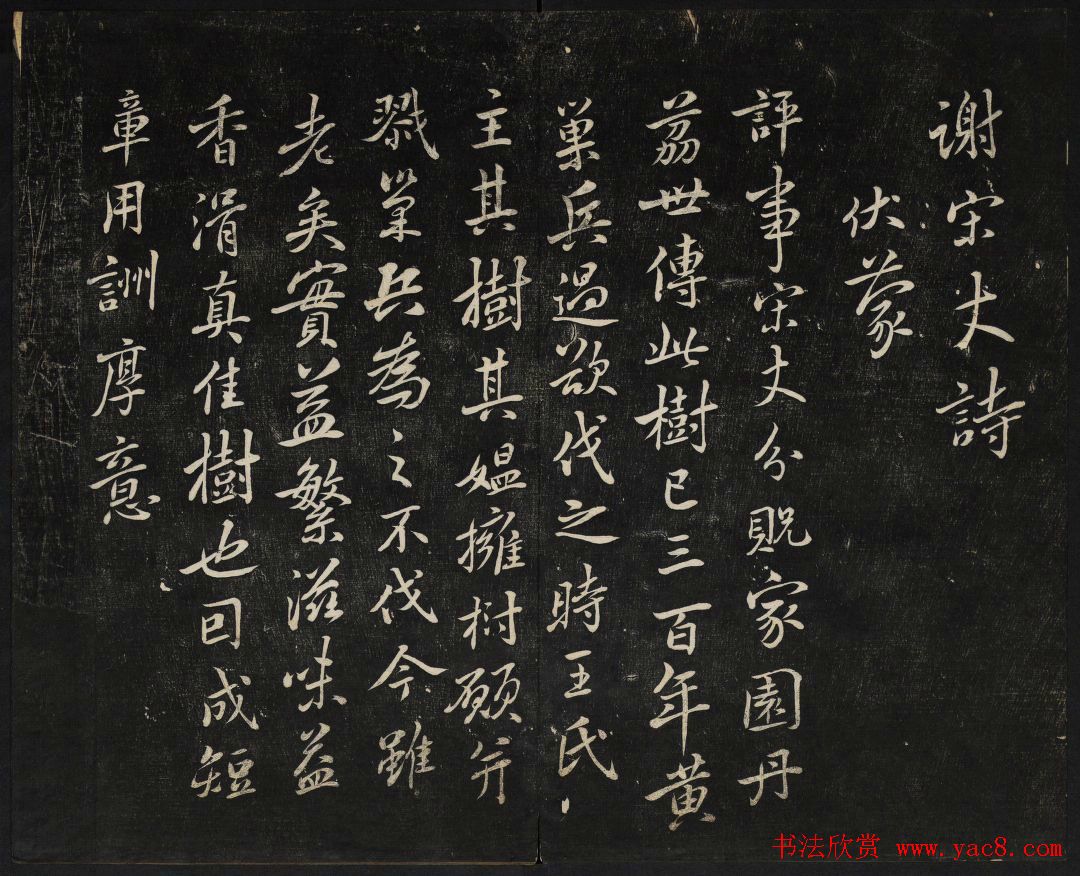 谢宋丈詩
伏蒙
評事宋丈分貺家園丹
荔世傳此樹已三百年黄
巢兵過欲伐之時王氏
主其樹其媼擁樹願并
戮巢兵為之不伐今雖
老矣實益繁滋味益
香滑真佳樹也因成短
章用詶厚意
书法欣赏 www.yac8.com